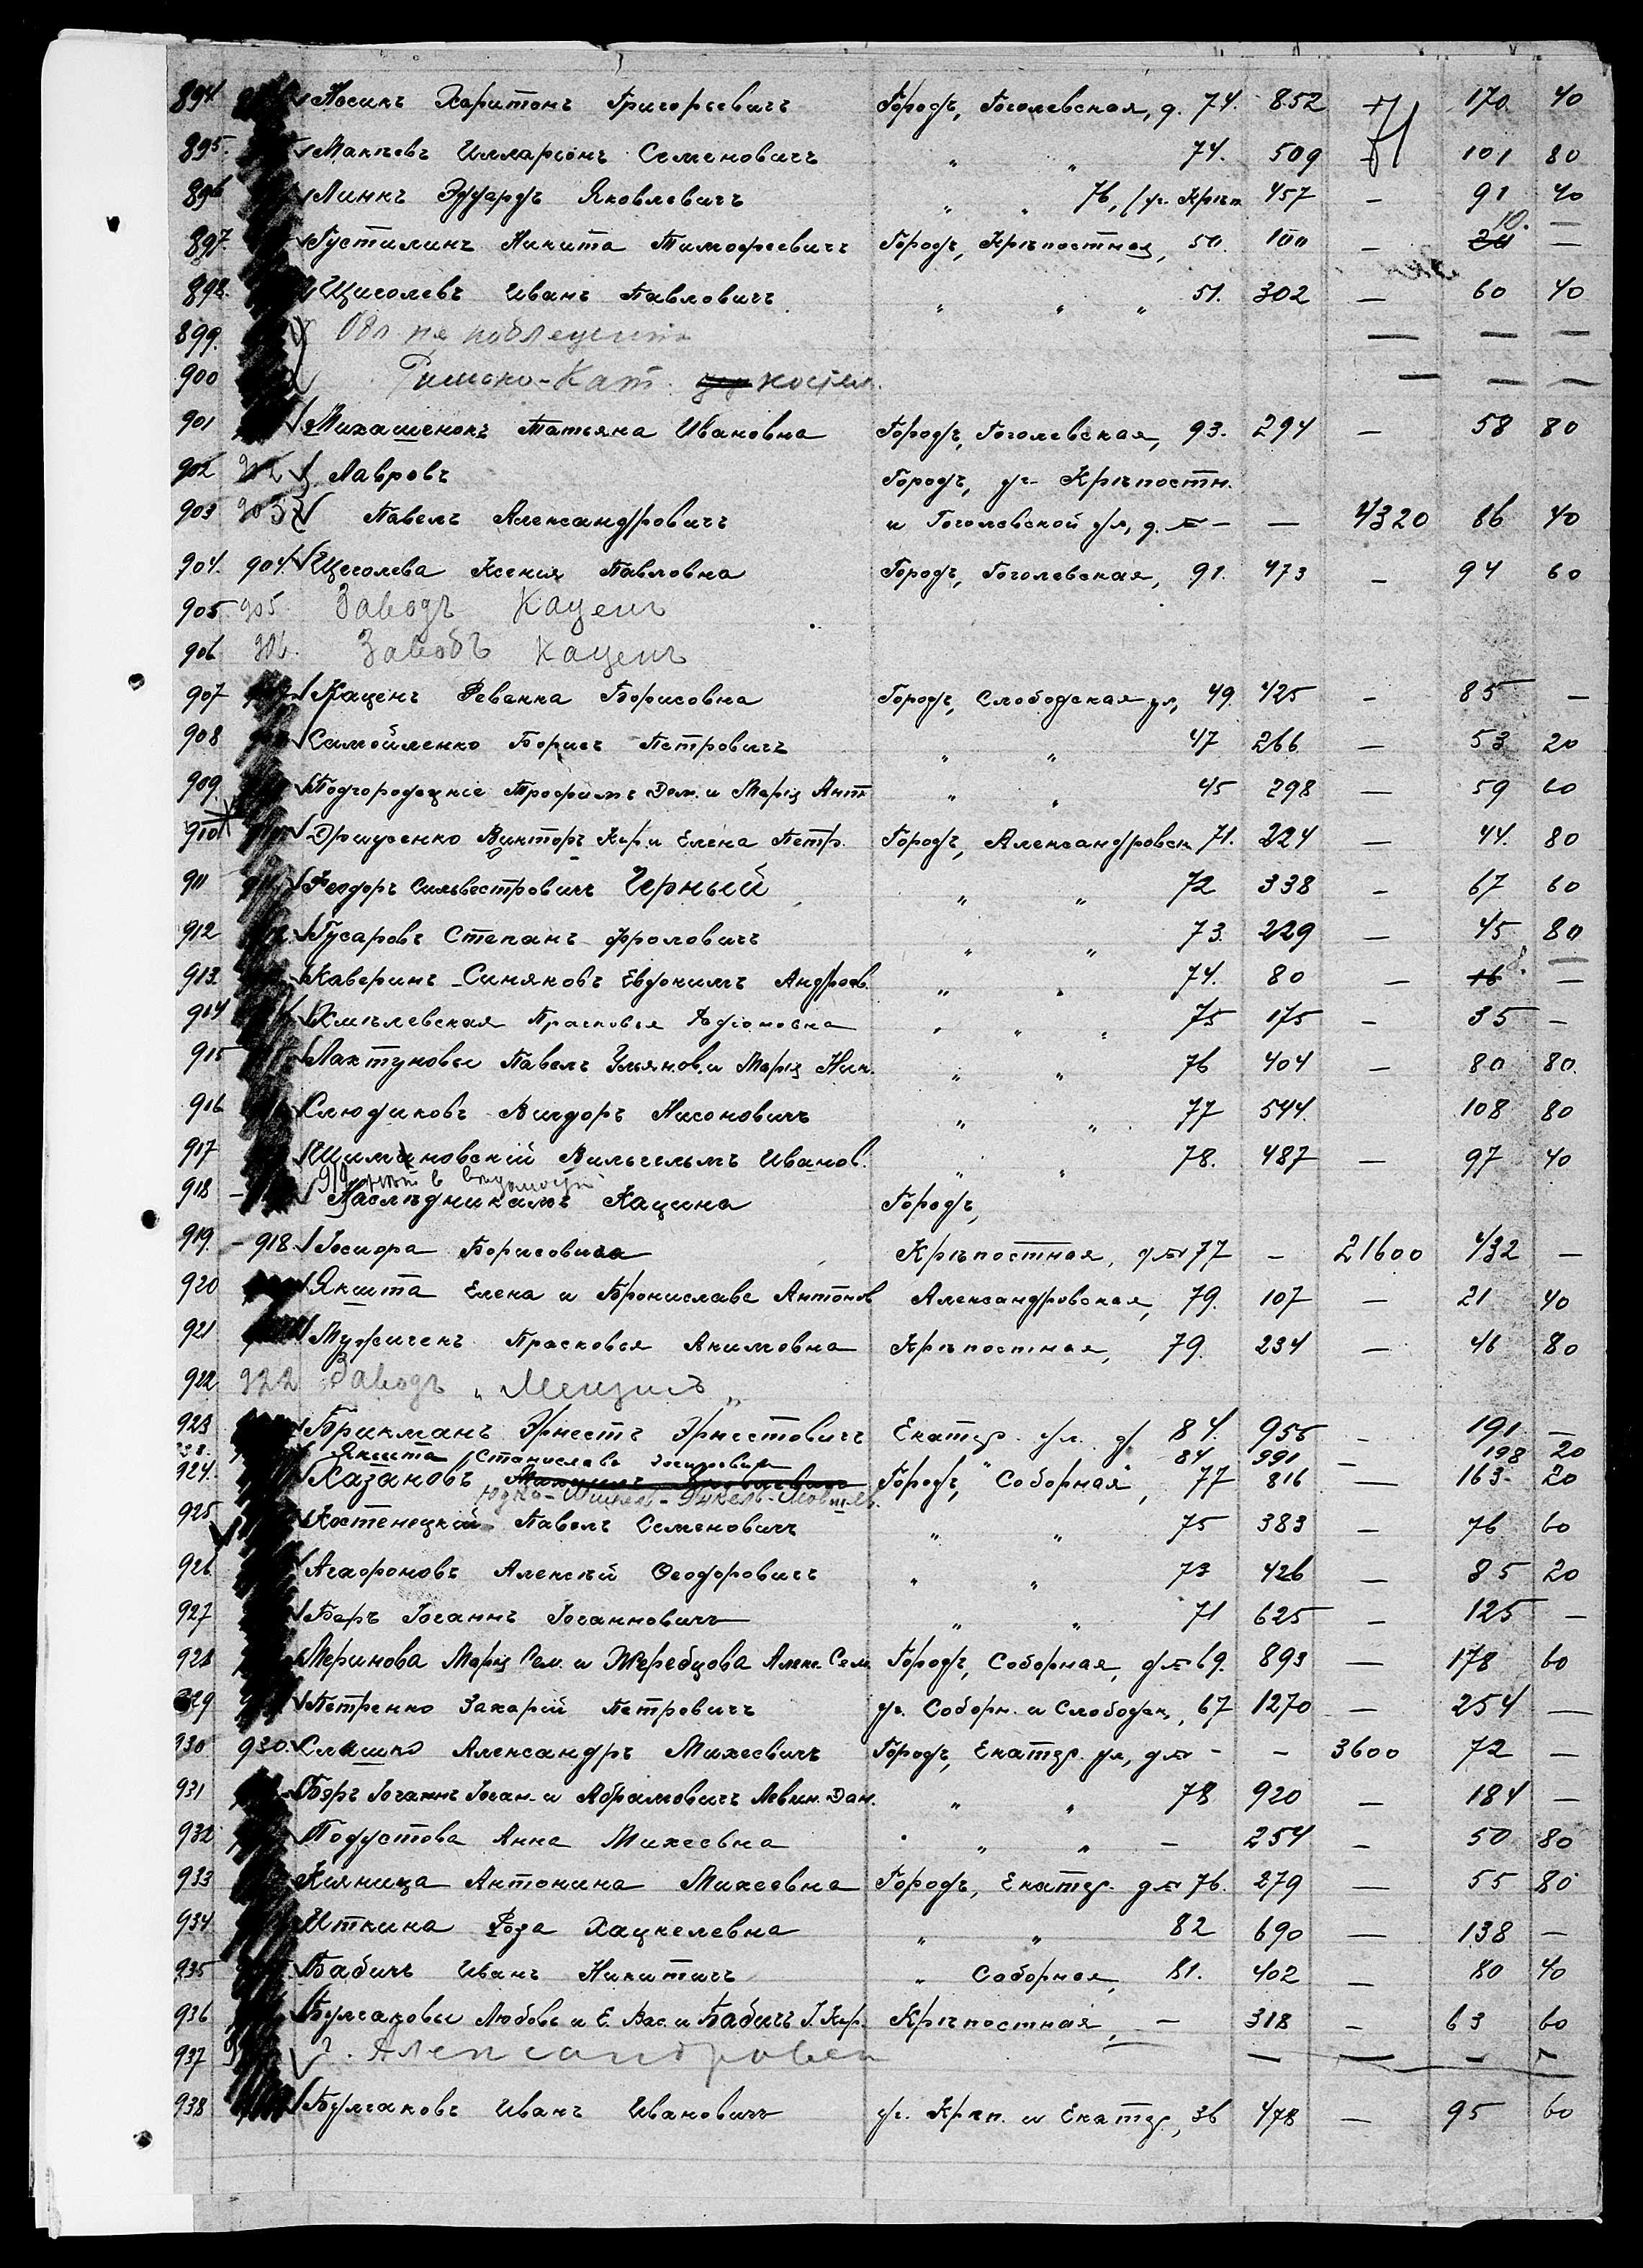 894 Носикъ Харитонъ Григорьевичъ Городъ, Гоголевская, д. 74. 852 170 40
895 Макѣевъ Илларіонъ Семеновичъ " " 74. 509 101 80
896 Линкъ Эдуардъ Яковлевичъ " " 76, / уг. Крѣп. 457 — 91 40
10. —
897. Густилинъ Никита Тимофеевичъ Городъ, Крѣпостная, 50. 100 — 20 —
898. Щеголевъ Иванъ Павловичъ " " " 51. 302 — 60 40
899. Обл. не подлежитъ — — —
900 Римско-Кат. костел. — — —
901 Михашенокъ Татьяна Ивановна Городъ, Гоголевская, 93. 294 — 58 80
902 902 Лавровъ Городъ, уг. Крѣпостн.
903 903 Павелъ Александровичъ и Гоголевской ул, д. № — — 4320 86 40
904. 904. Щеголева Ксенія Павловна Городъ, Гоголевская, 91. 473 — 94 60
905 905 Заводъ Каценъ
906 906. Заводъ Каценъ
907 Каценъ Ревекка Борисовна Городъ, Слободская ул, 49 425 — 85 —
908 Самойленко Борисъ Петровичъ " " 47 266 — 53 20
909. Подгородецкіе Трофимъ Дем. и Марія Ант. " " 45 298 — 59 60
910 Викторъ Кир. и Елена Петр. Городъ, Александровск 71. 224 — 44. 80
911 Феодоръ Сильвестровичъ Черный " " 72 338 — 67 60
912 Гусаровъ Степанъ Фроловичъ " " 73. 229 — 45 80
8. —
913. Каверинъ-Синяковъ Евдокимъ Андреев. " " 74. 80 — 16 —
914 Хмѣлевская Прасковья " " " 75 175 — 35 —
915 Лахтуновы Павелъ Ульянов. и Марія Ник. " " 76 404 — 80 80.
916 Слюдиковъ Вигдоръ Нисоновичъ " " 77 544. 108 80
917 Шимановскій Вильгельмъ Иванов. " " 78. 487 — 97 40
919 нѣтъ в вѣдомости
918 — Наслѣдникамъ Кацина Городъ,
919. — 918 Іосифа Борисовича Крѣпостная, д № 77 — 21600 432 —
920 Якшта Елена и Брониславъ Антонов Александровская, 79. 107 — 21 40
921 Мужиченъ Прасковья Акимовна Крѣпостная, 79. 234 — 46 80
922 922 Заводъ "
923 Брикманъ Эрнестъ Эрнестовичъ Екатер. ул. д 84. 955 — 191 —
Якшта Станиславъ 84 991 — 198 20
924. Хазановъ Городъ, Соборная, 77 816 — 163 20
925 Костенецкій Павелъ Семеновичъ " " 75 383 — 76 60
926 Агафоновъ Алексѣй Феодоровичъ " " 73 426 — 85 20
927 Беръ Іоганнъ Іоганновичъ " " 71 625 — 125 —
928 Меринова Марія Сем. и Жеребцова Алек. Сем. Городъ, Соборная, д № 69. 893 — 178 60
929 Петренко Захарій Петровичъ уг. Соборн. и Слободск, 67 1270 — 254 —
930 930. Слашко Александръ Михеевичъ Городъ, Екатер. ул, д № — — 3600 72 —
931 Бэръ Іоганнъ Іоган. и Абрамовичъ Левин. Дан. " " 78 920 — 184 —
932 Подустова Анна Михеевна " " — 254 — 50 80
933 Кияница Антонина Михеевна Городъ, Екатер. д № 76. 279 — 55 80
934 Иткина Роза Хацкелевна " " 82 690 — 138 —
935 Бабичъ Иванъ Никитичъ " Соборная, 81. 402 — 80 40
936 Булгаковы Любовь и Е. Вас. и Бабичъ І. Кир. Крѣпостная, — 318 — 63 60
937 Александровск — — — —
938 Булгаковъ Иванъ Ивановичъ уг. Крѣп. и Екатер., 36 478 — 95 60